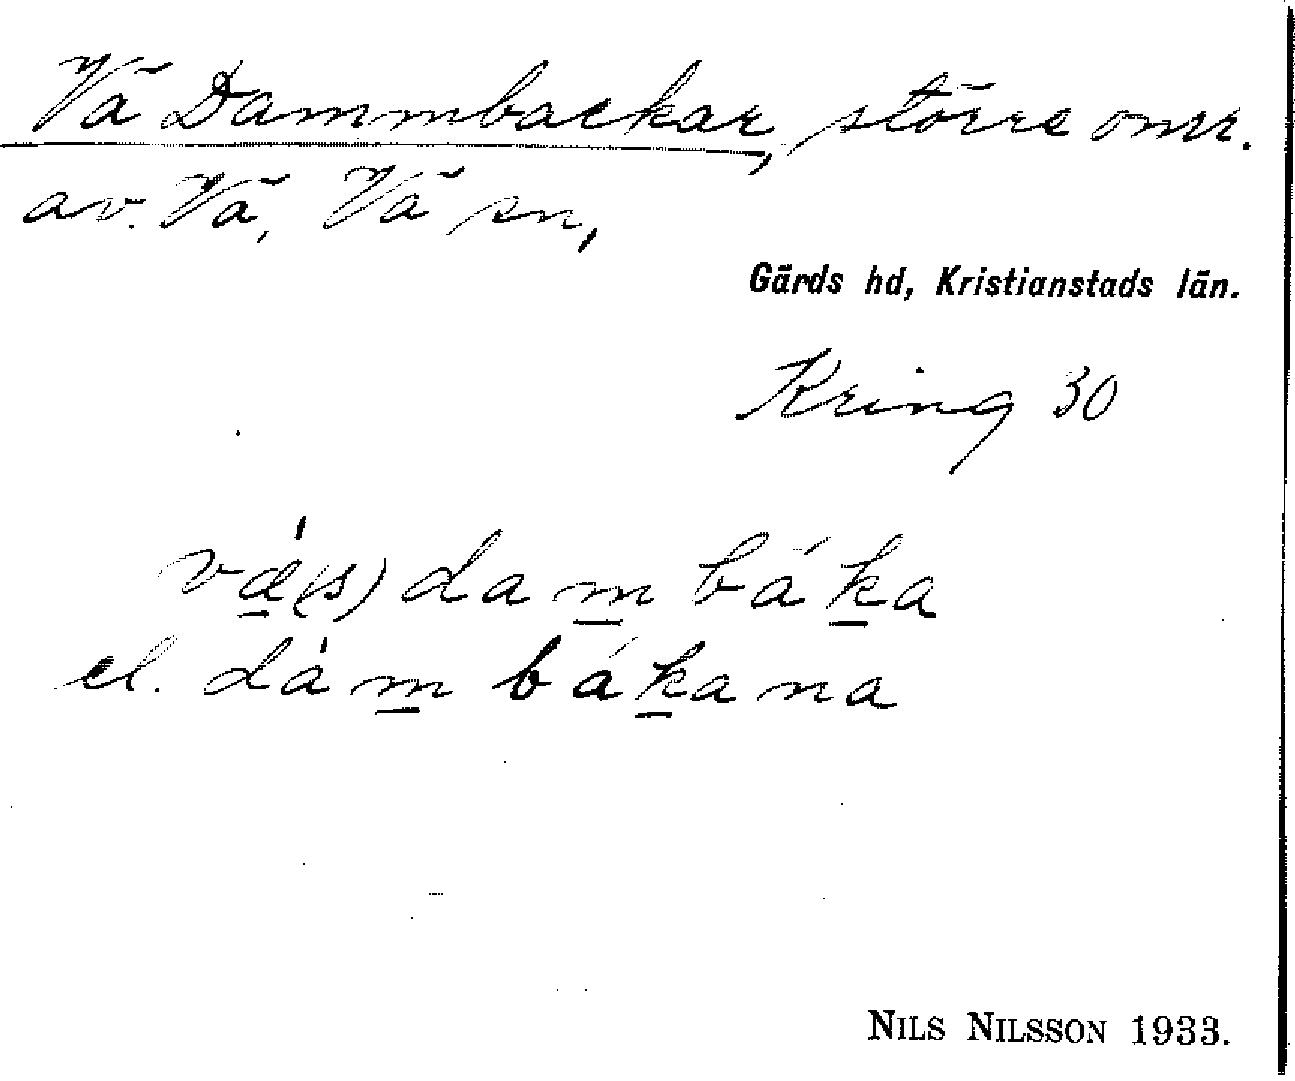 Vä Dammbackar, större omr.
av. Vä, Vä sn,
Gärds hd, Kristianstads län.
Kring 30
vǽ̱(s)dam̱báḵa
el. dàm̱báḵana
NILS NILSSON 1933.